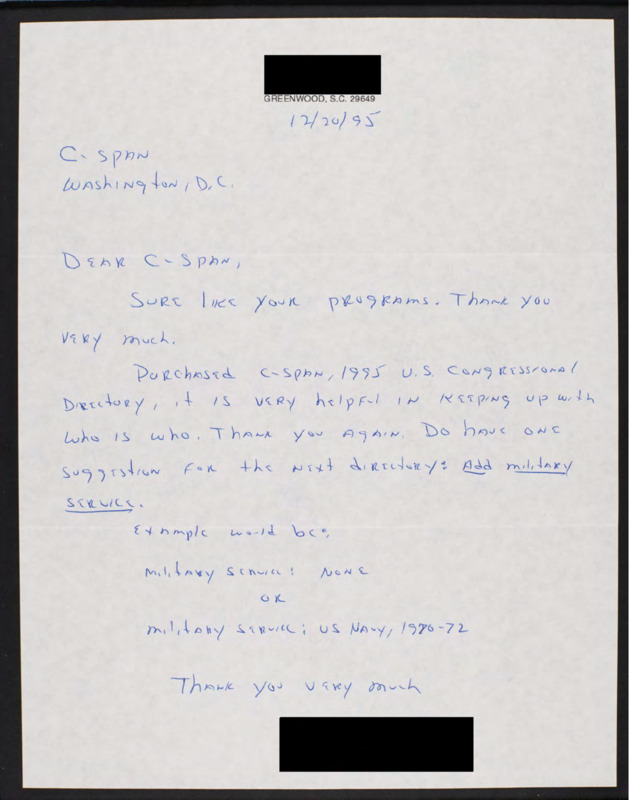 GREENWOOD, S.C. 29649
12/20/95
C-SPAN
WASHINGTON, D.C.
DEAR C-SPAN,
SURE LIKE YOUR PROGRAMS. THANK YOU
VERY much.
PURCHASED C-SPAN, 1995 U.S. CONGRESSIONAL
DIRECTORY, it IS VERY helpful IN KEEPING UP with
who IS who. THANK YOU AGAIN. DO have ONE
SUGGESTION FOR the NEXT directory: Add military
SERVICE.
Example would be:
military SERVICE: NONE
OR
military SERVICE: US NAVY, 1970-72
THANK YOU VERY much